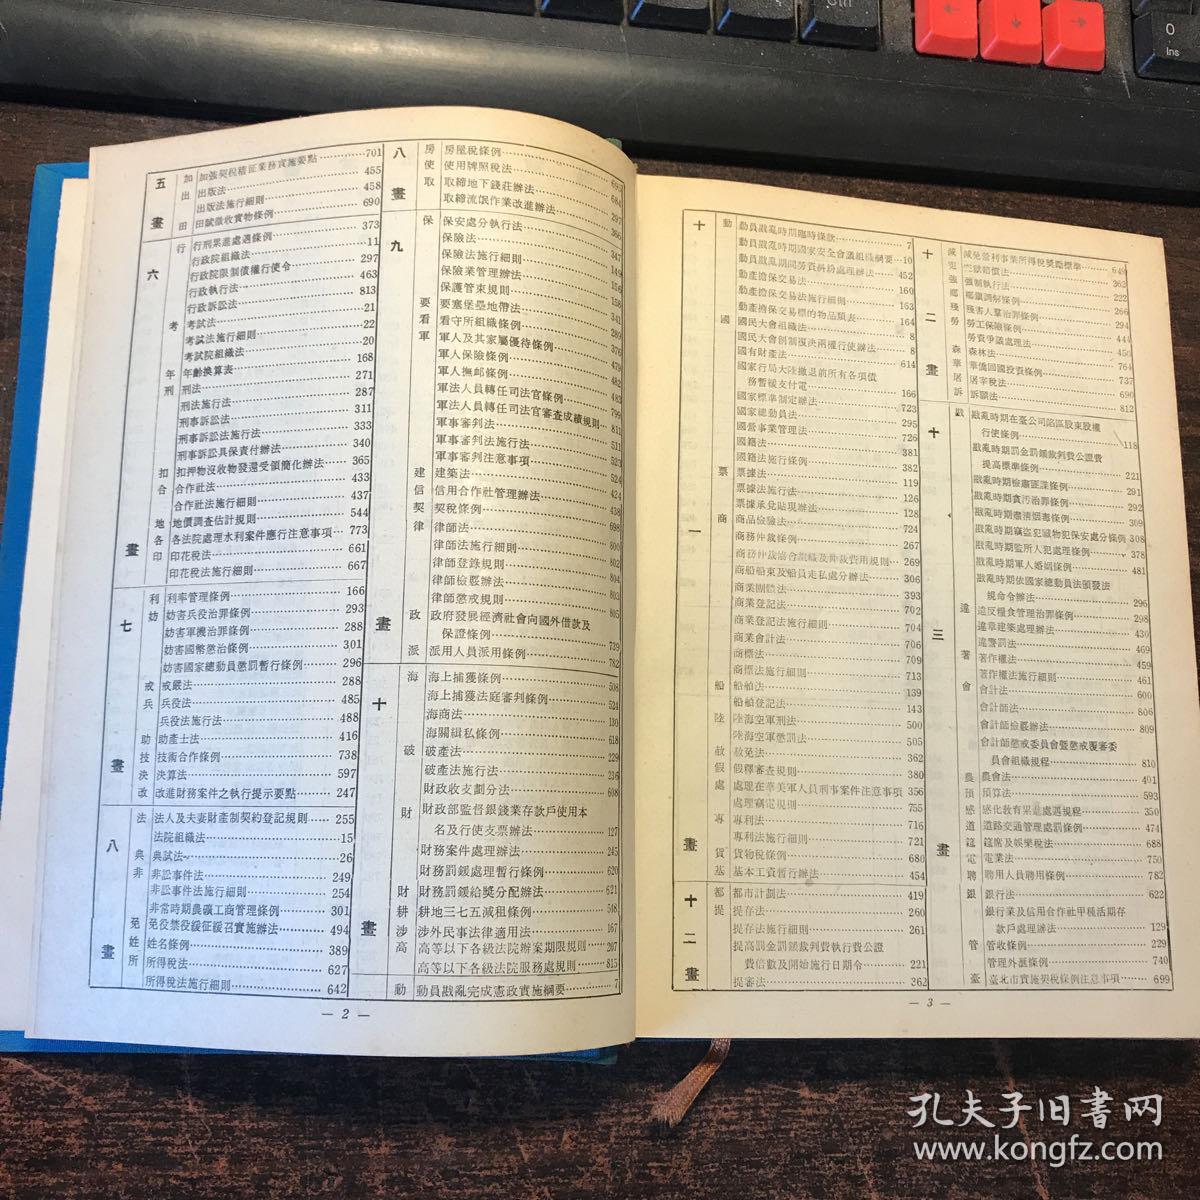 五畫
加 加強契稅稽征業務實施要點 701
出 出版法 455
出版法施行細則 458
田 田賦徵收實物條例 690
六畫
行 行刑累進處遇條例 373
行政院組織法 11
行政院限制債權行使令 297
行政執行法 463
行政訴訟法 813
考 考試法 21
考試法施行細則 22
考試院組織法 20
年 年齡換算表 168
刑 刑法 271
刑法施行法 287
刑事訴訟法 311
刑事訴訟法施行法 333
刑事訴訟具保責付辦法 340
扣 扣押物沒收物發還受領簡化辦法 365
合 合作社法 433
合作社法施行細則 437
地 地價調查估計規則 544
各 各法院處理水利案件應行注意事項 773
印 印花稅法 661
印花稅法施行細則 667
七畫
利 利率管理條例 166
妨 妨害兵役治罪條例 293
妨害軍機治罪條例 288
妨害國幣懲治條例 301
妨害國家總動員懲罰暫行條例 296
戒 戒嚴法 288
兵 兵役法 485
兵役法施行法 488
助 助產士法 416
技 技術合作條例 738
決 決算法 597
改 改進財務案件之執行提示要點 247
八畫
法 法人及夫妻財產制契約登記規則 255
法院組織法 15
典 典試法 26
非 非訟事件法 249
非訟事件法施行細則 254
非常時期農礦工商管理條例 301
免 免役禁役緩征緩召實施辦法 494
姓 姓名條例 389
所 所得稅法 627
所得稅法施行細則 642
八畫
房 房屋稅條例
使 使用牌照稅法
取 取締地下錢莊辦法
取締流氓作業改進辦法
九畫
保 保安處分執行法
保險法 347
保險法施行細則 149
保險業管理辦法 156
保護管束規則
要 要塞堡壘地帶法
看 看守所組織條例
軍 軍人及其家屬優待條例 376
軍人保險條例
軍人撫卹條例 482
軍法人員轉任司法官條例 483
軍法人員轉任司法官審查成績規則
軍事審判法
軍事審判法施行法 511
軍事審判注意事項 523
建 建築法 524
信 信用合作社管理辦法 424
契 契稅條例 438
律 律師法 698
律師法施行細則 800
律師登錄規則 802
律師檢覈辦法 804
律師懲戒規則 805
政 政府發展經濟社會向國外借款及
保證條例 739
派 派用人員派用條例 782
十畫
海 海上捕獲條例 508
海上捕獲法庭審判條例 524
海商法 130
海關緝私條例 618
破 破產法 229
破產法施行法 236
財政收支劃分法 608
財 財政部監督銀錢業存款戶使用本
名及行使支票辦法 127
財務案件處理辦法 245
財務罰鍰處理暫行條例 620
財 財務罰鍰給獎分配辦法 621
耕 耕地三七五減租條例 548
涉 涉外民事法律適用法 167
高 高等以下各級法院辦案期限規則 207
高等以下各級法院服務處規則 815
動 動員戡亂完成憲政實施綱要 7
— 2 —
十一畫
動 動員戡亂時期臨時條款 7
動員戡亂時期國家安全會議組織綱要 10
動員戡亂期間勞資糾紛處理辦法 452
動產擔保交易法 160
動產擔保交易法施行細則 163
動產擔保交易標的物品類表 164
國 國民大會組織法 8
國民大會創制複決兩權行使辦法 8
國有財產法 614
國家行局大陸撤退前所有各項債
務暫緩支付電 166
國家標準制定辦法 723
國家總動員法 295
國營事業管理法 726
國籍法 381
國籍法施行條例 382
票 票據法 119
票據法施行法 126
票據承兌貼現辦法 128
商 商品檢驗法 724
商務仲裁條例 267
商務仲裁協會組織及仲裁費用規則 269
商船船東及船員走私處分辦法 306
商業團體法 393
商業登記法 702
商業登記法施行細則 704
商業會計法 706
商標法 709
商標法施行細則 713
船 船舶法 139
船舶登記法 143
陸 陸海空軍刑法 500
陸海空軍懲罰法 505
赦 赦免法 362
假 假釋審查規則 380
處 處理在華美軍人員刑事案件注意事項 356
處理竊電規則 755
專 專利法 716
專利法施行細則 721
貨 貨物稅條例 680
基 基本工資暫行辦法 454
十二畫
都 都市計劃法 419
提 提存法 260
提存法施行細則 261
提高罰金罰鍰裁判費執行費公證
費倍數及開始施行日期令 221
提審法 362
十二畫
減 減免營利事業所得稅獎勵標準 649
冤 冤獄賠償法 363
強 強制執行法 222
鄉 鄉鎮調解條例 266
殘 殘害人羣治罪條例 294
勞 勞工保險條例 444
勞資爭議處理法 450
森 森林法 764
華 華僑回國投資條例 737
屠 屠宰稅法 690
訴 訴願法 812
十三畫
戡 戡亂時期在臺公司陷區股東股權
行使條例 118
戡亂時期罰金罰鍰裁判費公證費
提高標準條例 221
戡亂時期檢肅匪諜條例 291
戡亂時期貪污治罪條例 292
戡亂時期肅清煙毒條例 309
戡亂時期竊盜犯贓物犯保安處分條例 308
戡亂時期監所人犯處理條例 378
戡亂時期軍人婚姻條例 481
戡亂時期依國家總動員法頒發法
規命令辦法 296
違 違反糧食管理治罪條例 298
違章建築處理辦法 430
違警罰法 469
著 著作權法 459
著作權法施行細則 461
會 會計法 600
會計師法 806
會計師檢覈辦法 809
會計師懲戒委員會暨懲戒覆審委
員會組織規程 810
農 農會法 401
預 預算法 593
感 感化教育累進處遇規程 350
道 道路交通管理處罰條例 474
筵 筵席及娛樂稅法 688
電 電業法 750
聘 聘用人員聘用條例 782
銀 銀行法 622
銀行業及信用合作社甲種活期存
款戶處理辦法 129
管 管收條例 229
管理外匯條例 740
臺 臺北市實施契稅條例注意事項 699
— 3 —
Ctrl
0
Ins
孔夫子旧書网
www.kongfz.com